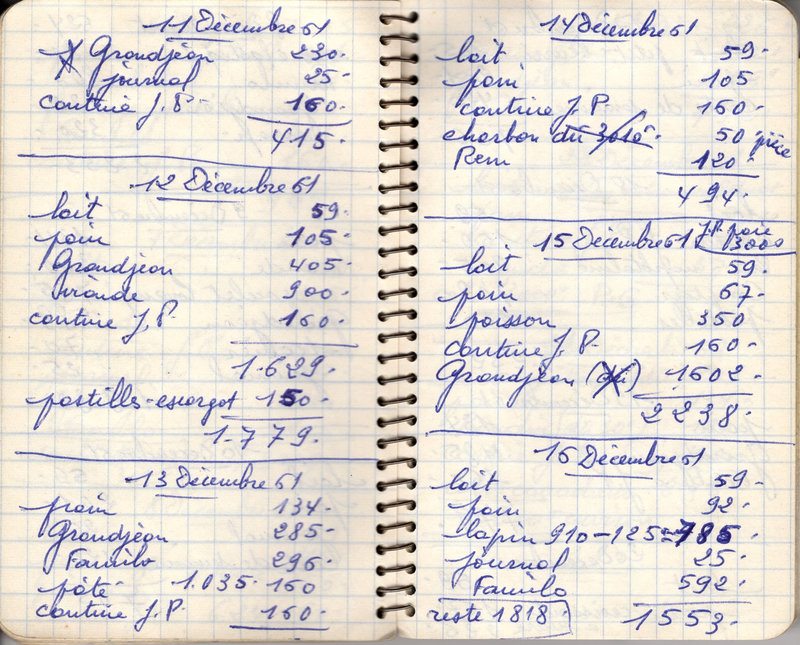 11 Décembre 61
Grandjean 230.
journal 25.
cantine J. P. 160.
415.
12 Décembre 61
lait 59.
pain 105.
Grandjean 405.
viande 900.
cantine J. P. 160.
1.629.
pastilles-escargot 150.
1.779.
13 Décembre 61
pain 134.
Grandjean 285.
Familo 296.
pâté 1.035. 160
cantine J. P. 160.
14 Décembre 61
lait 59.
pain 105
cantine J. P. 160.
charbon du 50 pièce
Rem 120.
494.
15 Décembre 61 J.P. paie
3000
lait 59.
pain 67.
poisson 350
cantine J. P. 160.
Grandjean 1602.
2238.
16 Décembre 61
lait 59.
pain 92.
lapin 910-125=785
journal 25.
Familo 592.
reste 1818. 1553.